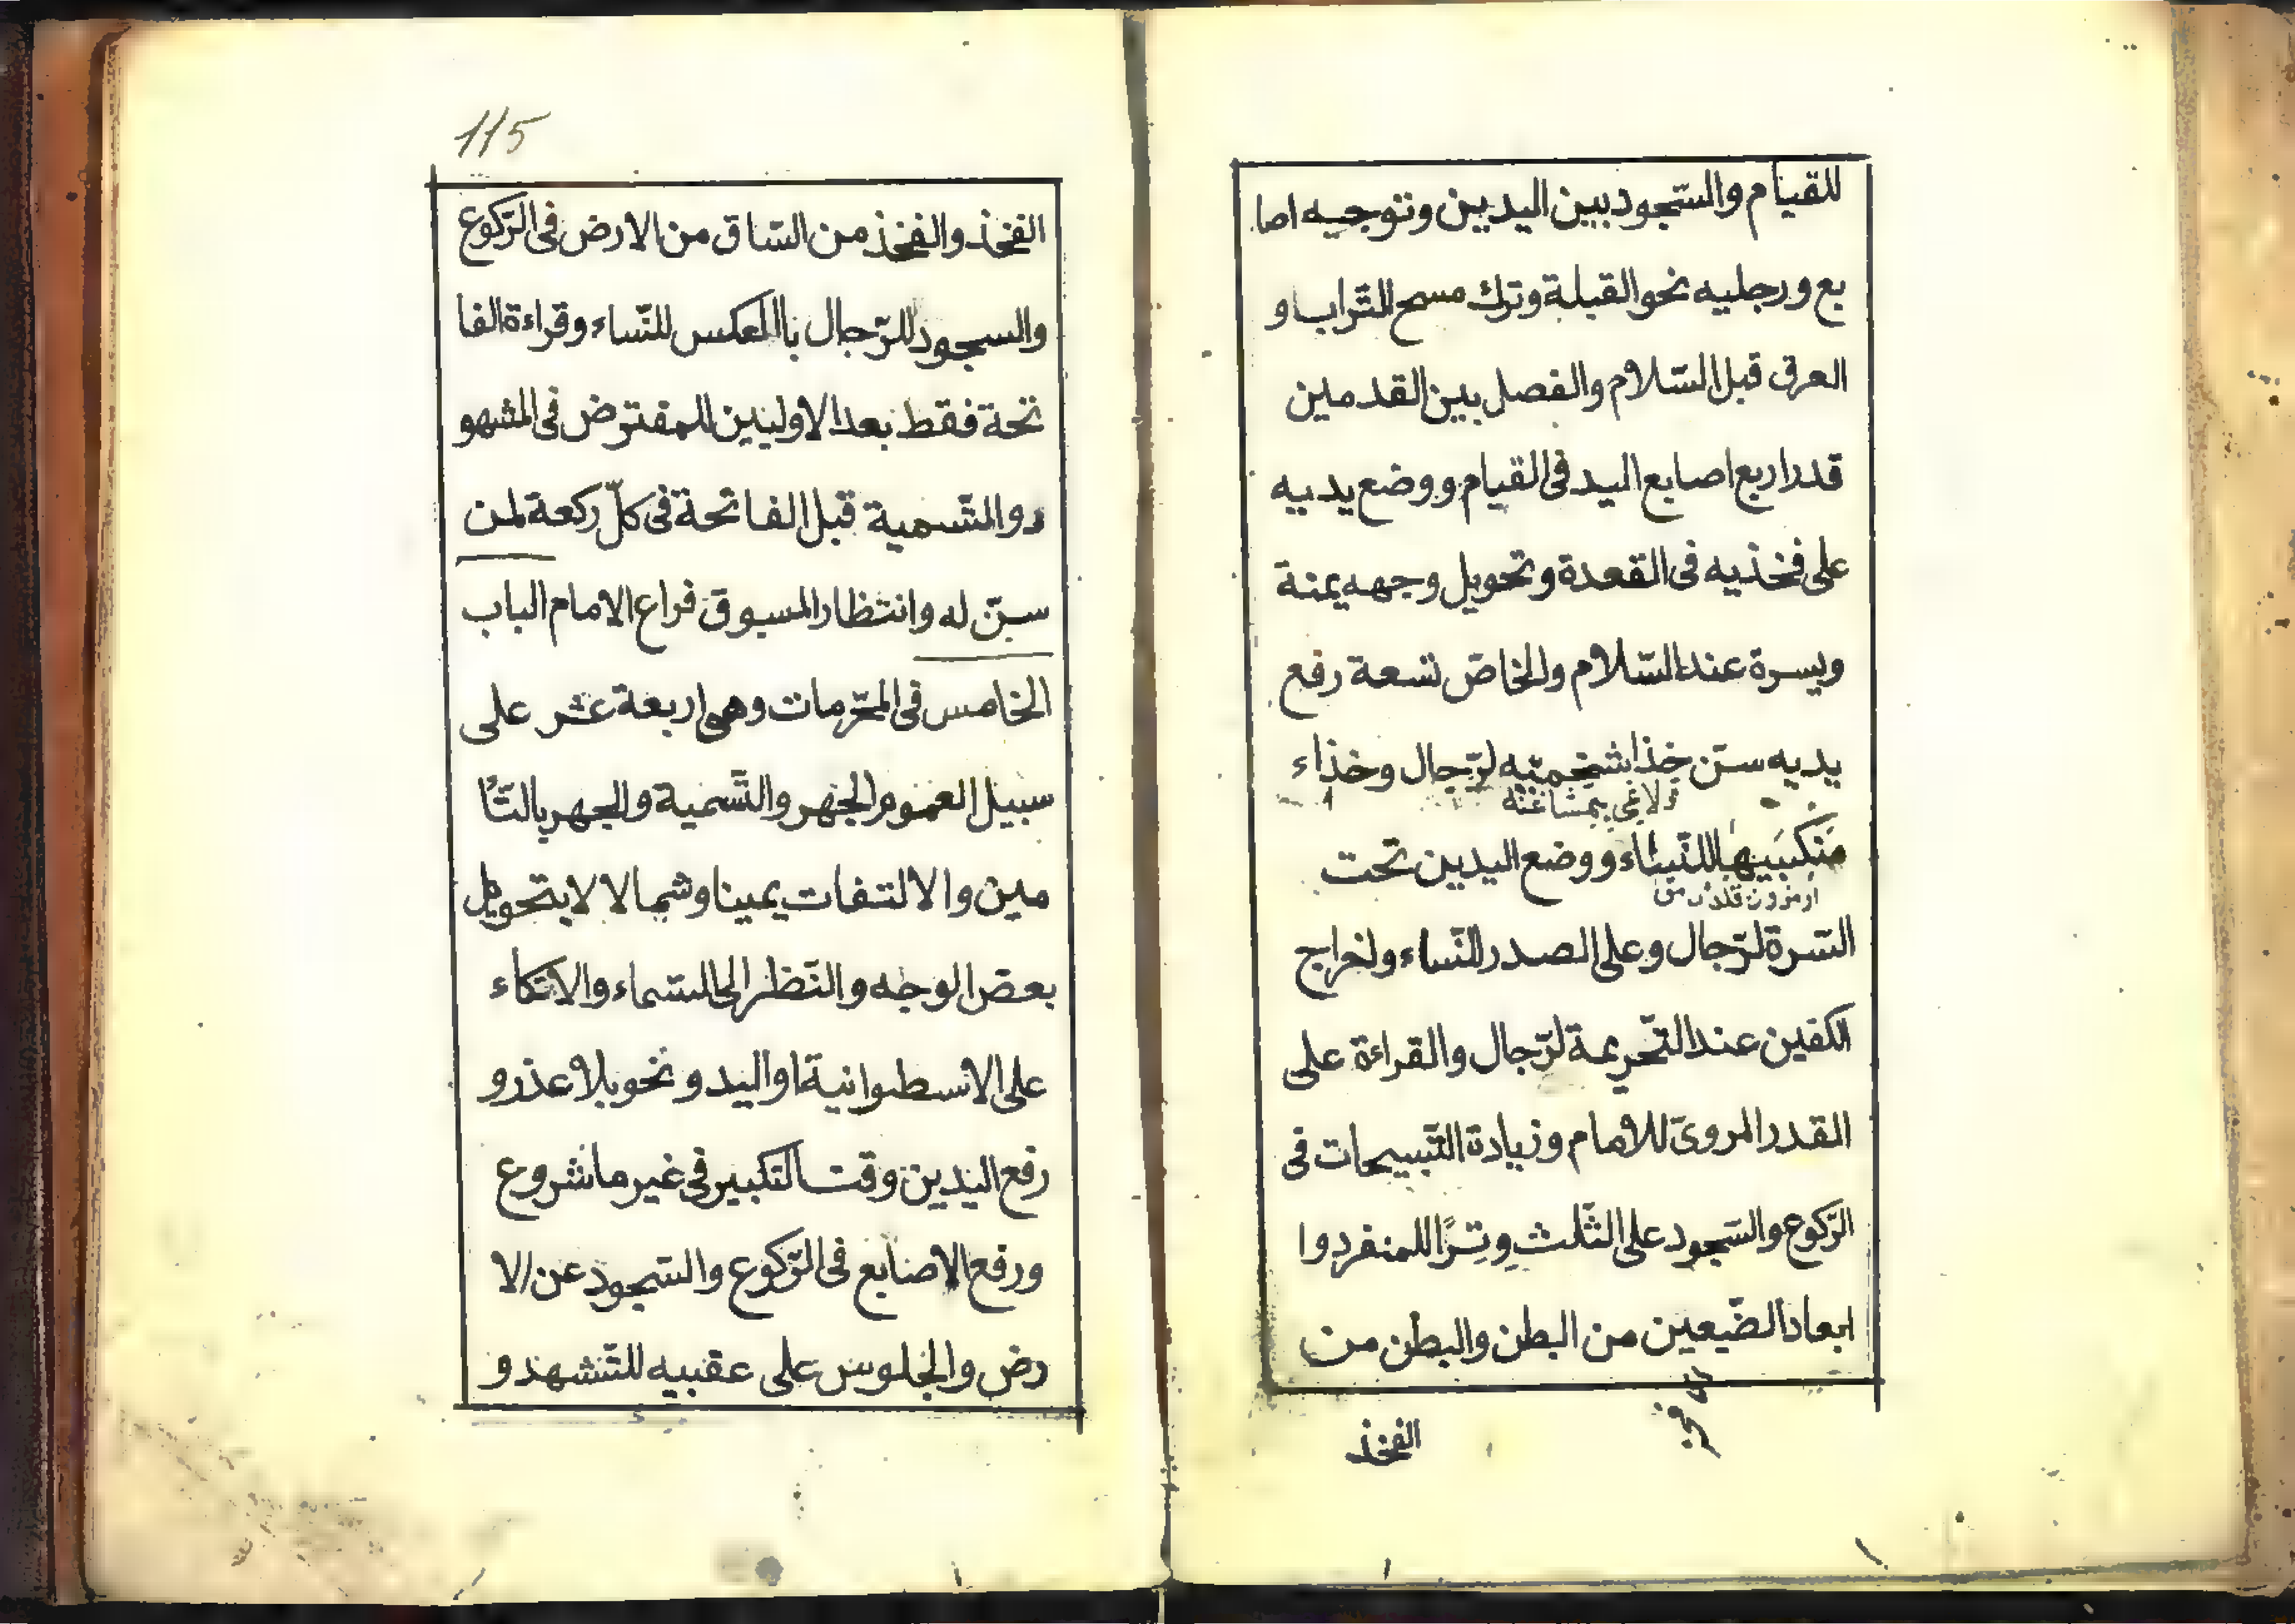 للقيام والسّجود بين اليدين وتوجيه اصا
بع ورجليه نحو القبلة وترك مسح التّراب و
العرق قبل السّلام والفصل بين القدمين
قدر اربع اصابع اليد فى القيام ووضع يديه
على فخذيه فى القعدة وتحويل وجهه يمنة
ويسرة عند السّلام والخاصّ تسعة رفع
يديه سنّ خذا شخميّه لرّجال وخذاء
منكبيها للنّساء ووضع اليدين تحت
السّرة لرّجال وعلى الصدر للنّساء ولخراج
الكفين عند التّحريمة لرّجال والقراءة على
القدر المروىّ للامام وزيادة التّسبيحات فى
الرّكوع والسّجود على الثّلث وترًا للمنفرد وا
بعاد الضّبعين من البطن والبطن من
الفخذ
115
الفخذ والفخذ من السّاق من الارض فى الرّكوع
والسجود للرّجال باالعكس للنّساء وقراءة الفا
تحة فقط بعد الاوليين للمفترض فى المشهو
ر والتّسمية قبل الفاتحة فى كلّ ركعة لمن
سنّ له وانتظار المسبوق فراغ الامام الباب
الخامس فى المحّرمات وهى اربعة عشر على
سبيل العموم الجهر والتّسمية والجهر بالتّأ
مين والالتفات يمينا وشمالا لا بتحويل
بعض الوجه والنّظر الى السّماء والاتّكاء
على الاسطوانية او اليد ونحو بلا عذر و
رفع اليدين وقت التكبير فى غير ما شروع
ورفع الاصابع فى الرّكوع والسّجود عن الا
رض والجلوس على عقبيه للتّشهد و